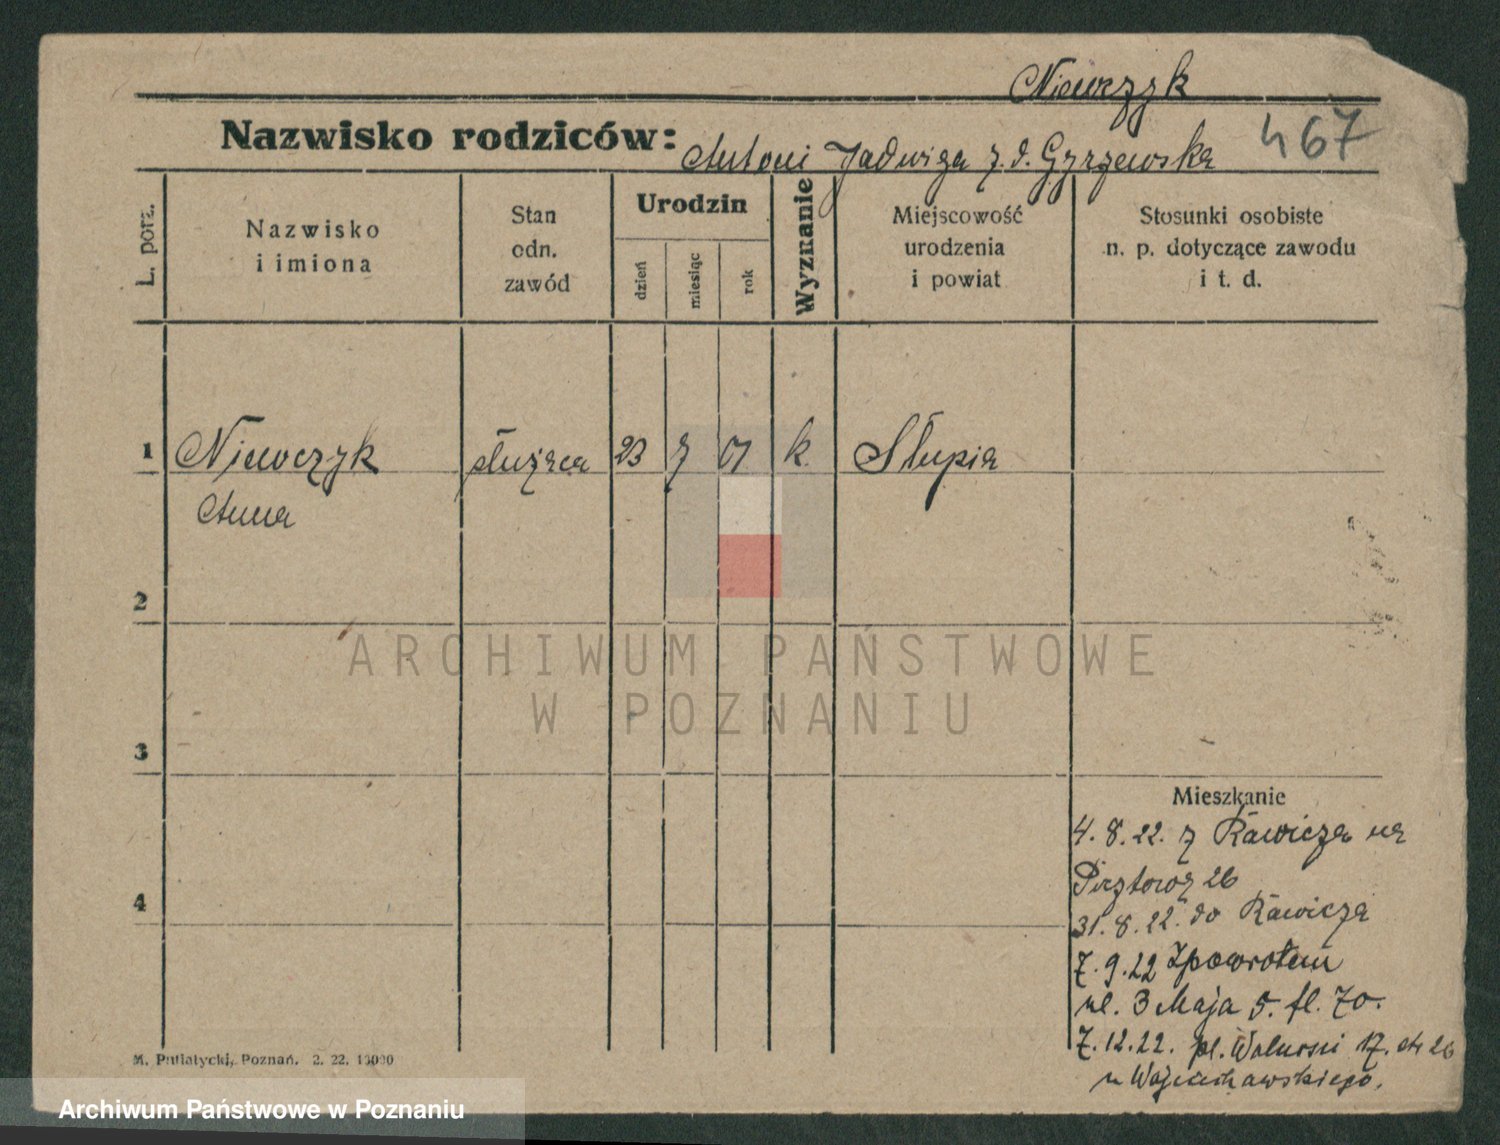 Niewczyk
Nazwisko rodziców: Antoni Jadwiga z. d. Gyrzewska
467
L. porz.
Nazwisko
i imiona
Stan
odn.
zawód
Urodzin
dzień
miesiąc
rok
Wyznanie
Miejscowość
urodzenia
i powiat
Stosunki osobiste
n. p. dotyczące zawodu
i t. d.
1 Niewczyk służąca 23 7 01 k. Słupia
Anna
2
ARCHIWUM PAŃSTWOWE
W POZNANIU
3
Mieszkanie
4. 8. 22. z Rawicza na
26
4
31. 8. 22. do Rawicza
7. 9. 22 Zpowrotem
ul. 3 Maja 5. fl. 70.
7. 12. 22. pl. Wolności 17. etr 26
u Wojciechowskiego.
M. Putiatycki, Poznań. 2. 22. 13000
Archiwum Państwowe w Poznaniu